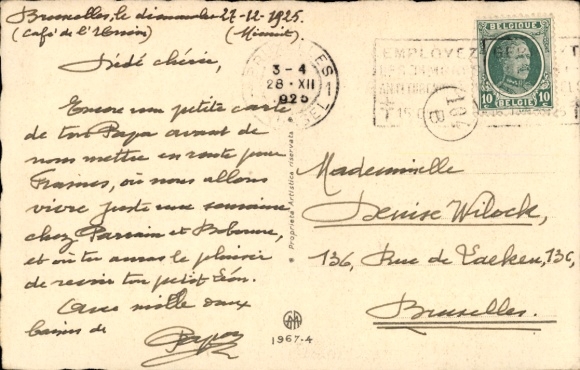 Bruxelles, le dimanche 27-12-1925.
(Café de l'Union) (Minuit)
Dédé chérie,
Encore une petite carte
de ton Papa avant de
nous mettre en route pour
Frasnes, où nous allons
vivre juste une semaine
chez Parrain et Bobonne,
et où tu auras le plaisir
de revoir ton petit Léon.
Avec mille doux
baisers de
Papa
Proprietà Artistica riservata
1967-4
BRUXELLES 1
3-4
28 XII
1925
BRUSSEL
EMPLOYEZ
LES TIMBRES
BELGIQUE
10 BELGIË 10
Mademoiselle
Denise Wilock,
136, Rue de Laeken, 136,
Bruxelles.